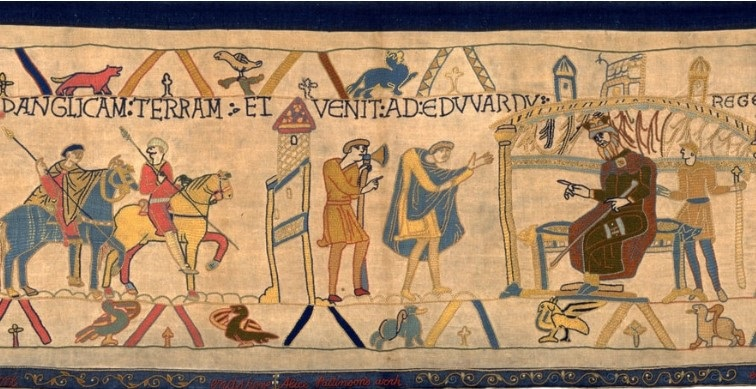 D ANGLICAM : TERRAM : ET VENIT : AD : EDVVARDV : REGE
work